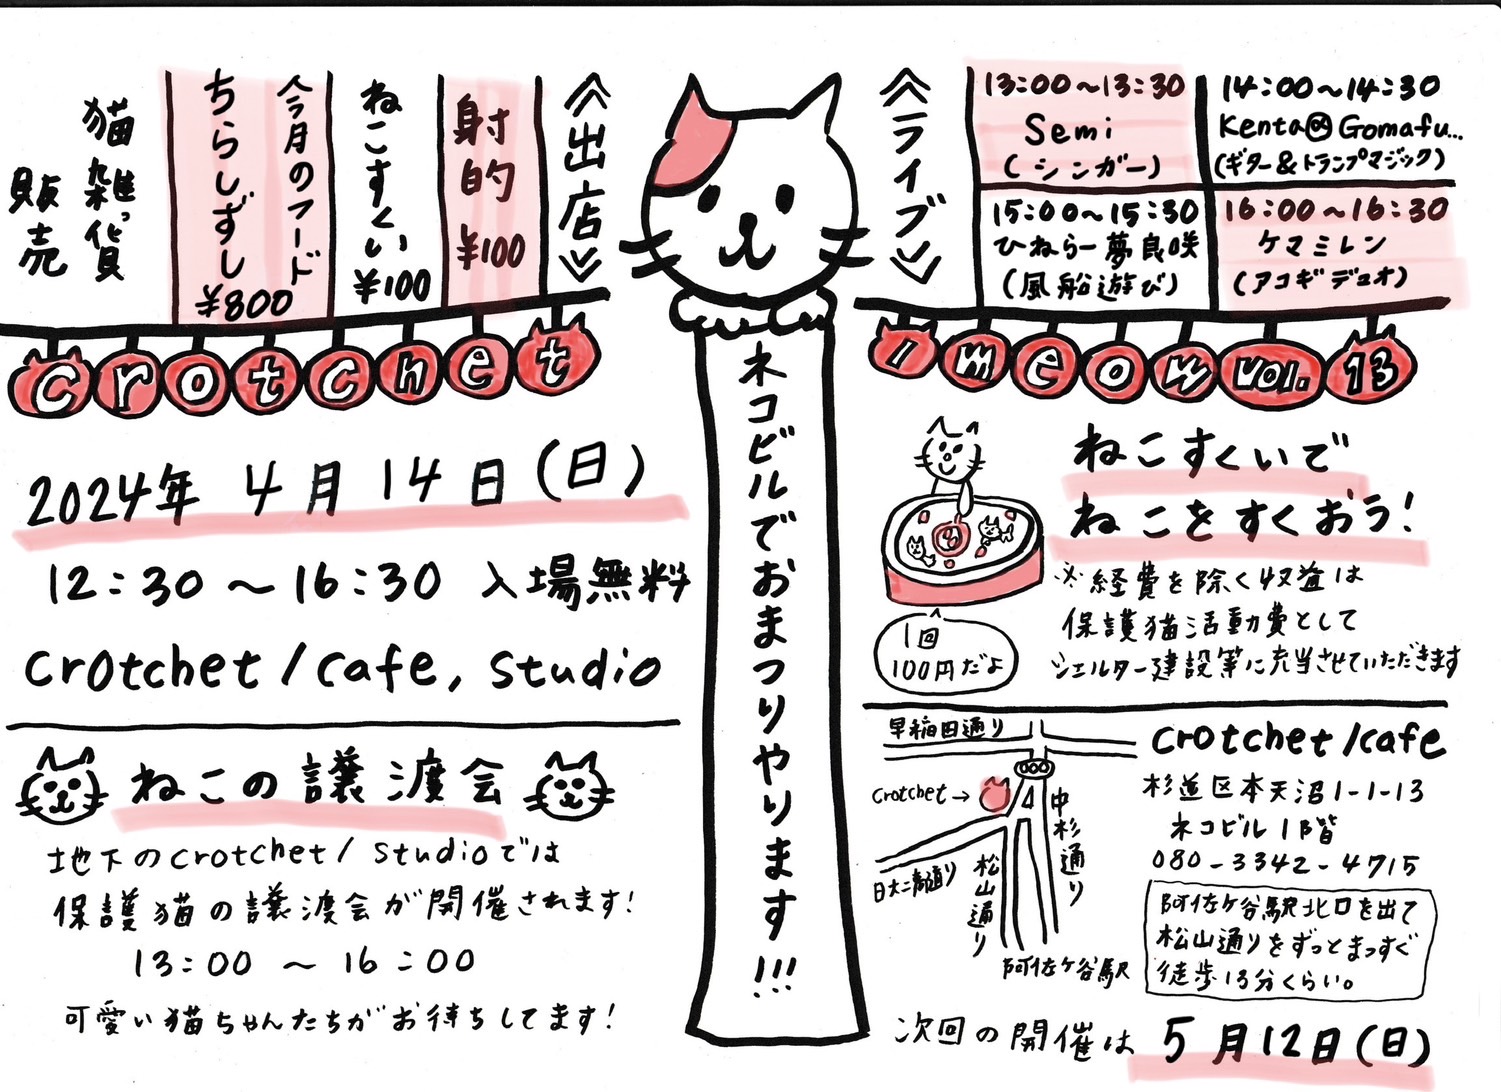 猫雑貨
販売
今月のフード
ちらしずし
¥800
ねこすくい
¥100
射的
¥100
《出店》
《ライブ》
13:00〜13:30
Semi
(シンガー)
14:00〜14:30
Kenta@Gomafu...
(ギター&トランプマジック)
15:00〜15:30
ひねらー夢良咲
(風船遊び)
16:00〜16:30
ケマミレン
(アコギデュオ)
crotchet
1 meow vol. 13
ネコビルでおまつりやります!!!
2024年 4月 14日(日)
12:30 〜 16:30 入場無料
crotchet/cafe, studio
ねこの譲渡会
地下のcrotchet/studioでは
保護猫の譲渡会が開催されます!
13:00 〜 16:00
可愛い猫ちゃんたちがお待ちしてます!
ねこすくいで
ねこをすくおう!
※経費を除く収益は
保護猫活動費として
シェルター建設等に充当させていただきます
1回
100円だよ
早稲田通り
crotchet→
中杉通り
日大二高通り
松山通り
阿佐ヶ谷駅
crotchet/cafe
杉並区本天沼1-1-13
ネコビル1階
080-3342-4715
阿佐ヶ谷駅北口を出て
松山通りをずっとまっすぐ
徒歩13分くらい。
次回の開催は 5月12日(日)